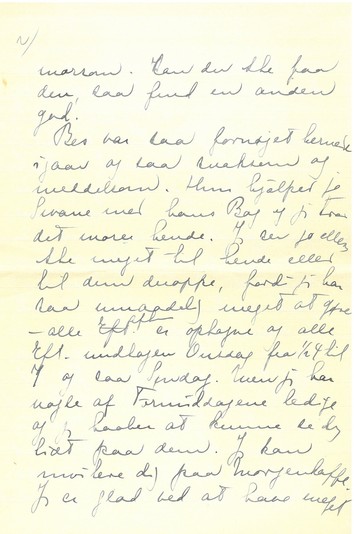 2/
morsom. Kan du ikke faa
den, saa find en anden
god.
Bes var saa fornøjet hernede
igaar og saa snaksom og
meddelsom. Hun hjälper jo
Swane med hans Bog og jeg tror
det morer hende. Jeg ser jo ellers
ikke meget til hende eller
til dem deroppe, fordi jeg har
saa umaadelig meget at gøre
– alle Eft. er optagne og alle
Eft. undtagen Onsdag fra 1/2 4 til
7 og saa Søndag. Men jeg har
nogle af Formiddagene ledige
og jeg haaber at kunne se dig
lidt paa dem. Jeg kan
invitere dig paa Morgenkaffe.
Jeg er glad ved at have meget